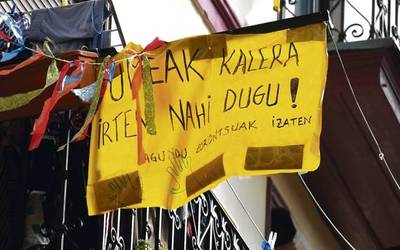 UMEAK KALERA
IRTEN NAHI DUGU!
LAGUNDU ZORIONTSUAK IZATEN